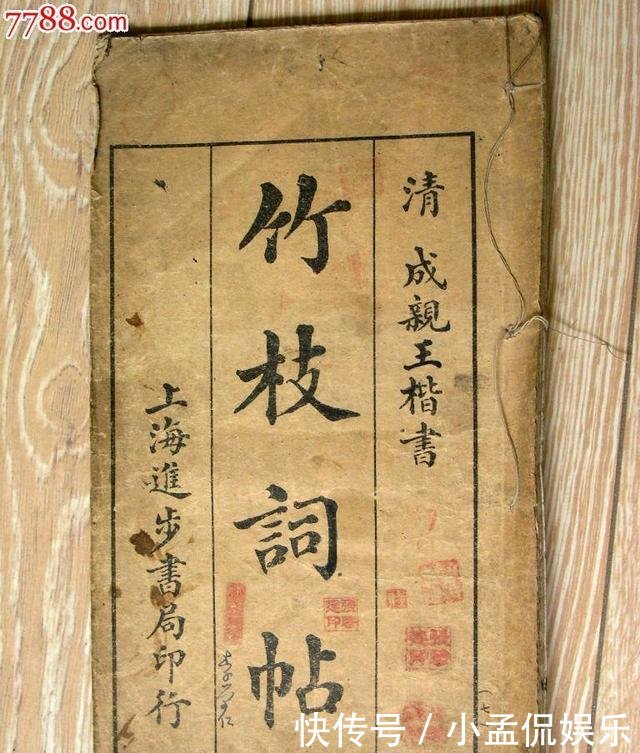 7788.com
清 成親王楷書
竹枝詞帖
上海進步書局印行
快传号 / 小孟侃娱乐